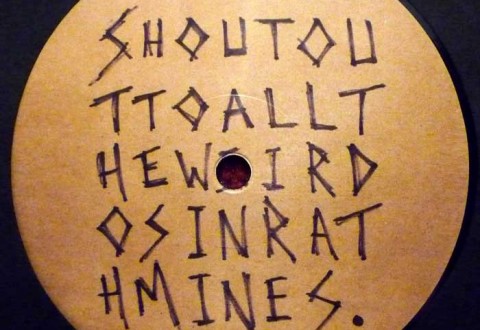 SHOUTOU
TTOALLT
HEWEIRD
OSINRAT
HMINES.